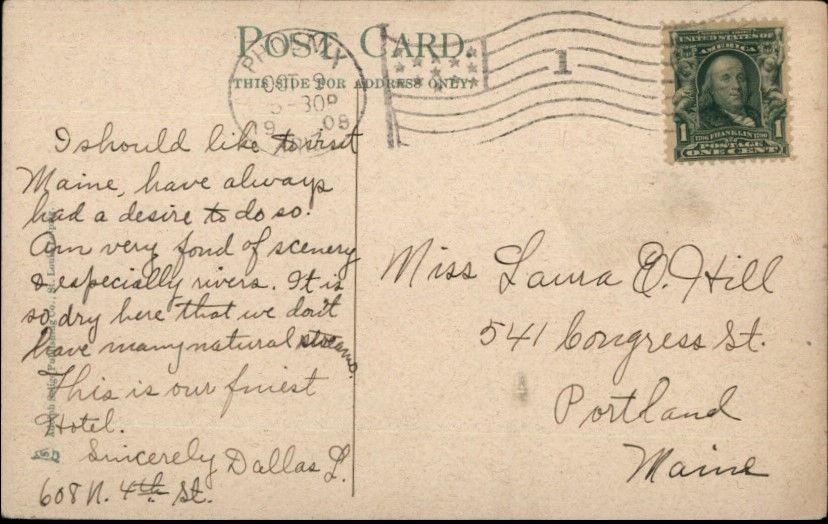 POST CARD.
THIS SIDE FOR ADDRESS ONLY.
1
19 08
UNITED STATES OF
AMERICA
1 FRANKLIN 1
POSTAGE
ONE CENT
I should like to visit
Maine, have always
had a desire to do so.
Am very fond of scenery
& especially rivers. It is
so dry here that we don't
have many natural streams.
This is our finest
Hotel.
Sincerely Dallas L.
608 N. 4th St.
Miss Laura E. Hill
541 Congress St.
Portland
Maine